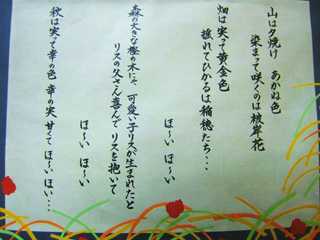 山は夕焼け　あかね色
染まって咲くのは彼岸花
畑は実って黄金色
揺れてひかるは稲穂たち・・・
ほ〜い　ほい
森の大きな樫の木にゃ　可愛い子リスが生まれたと
リスの父さん喜んで　リスを抱いて
ほ〜い　ほい
秋は実って幸の色　幸の実　甘くて　ほ〜い　ほい・・・